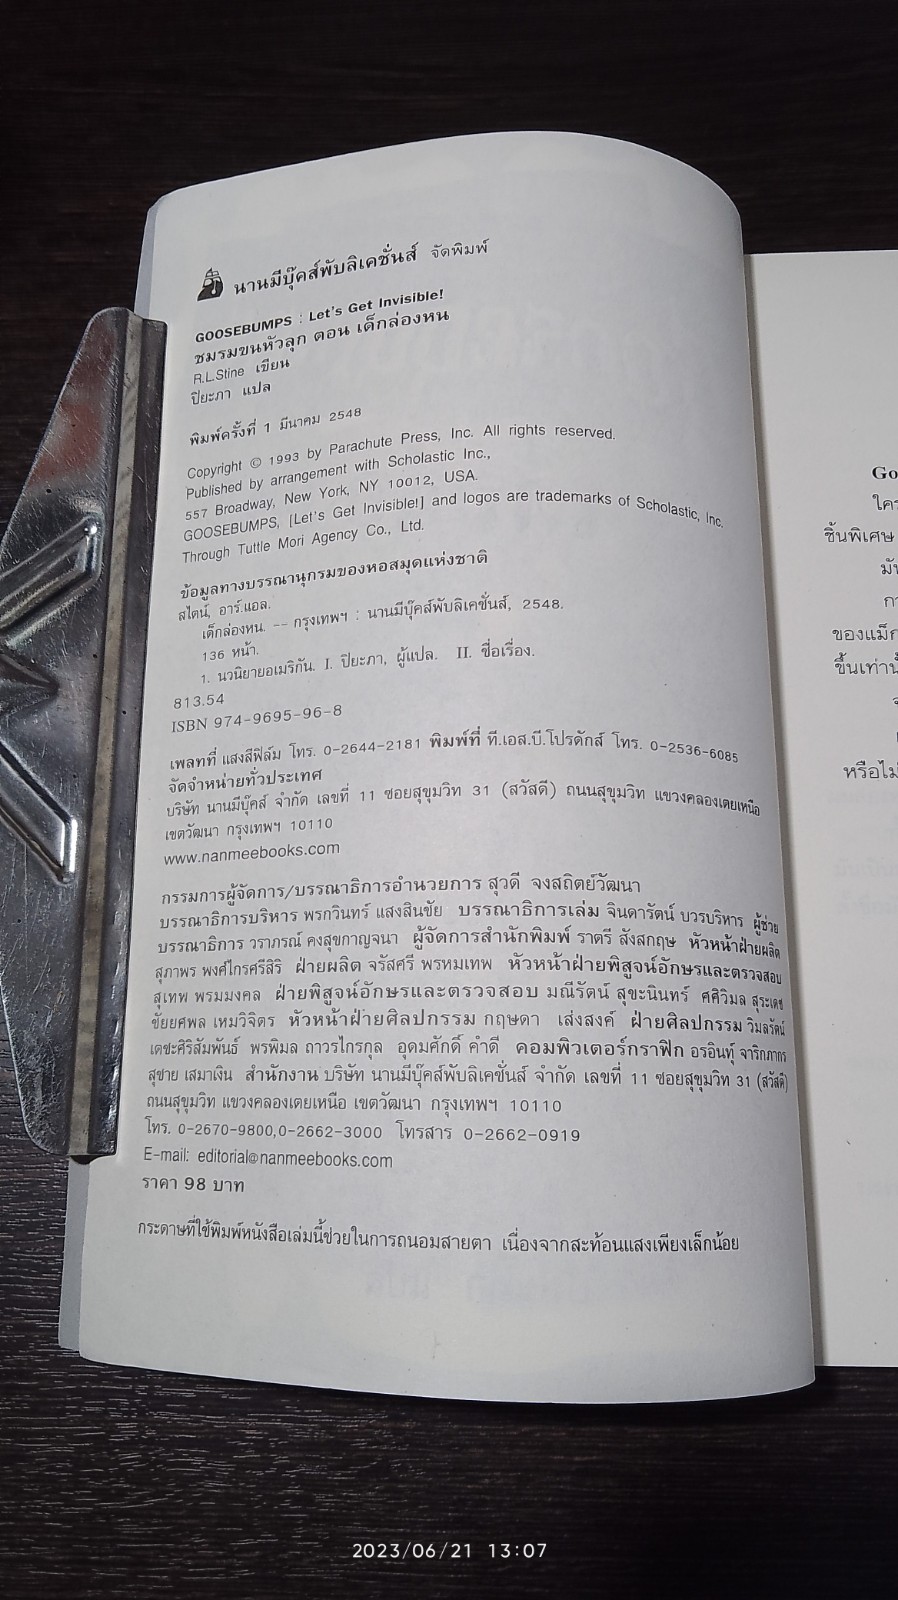 นานมีบุ๊คส์พับลิเคชั่นส์ จัดพิมพ์
GOOSEBUMPS : Let's Get Invisible!
ชมรมขนหัวลุก ตอน เด็กล่องหน
R.L.Stine เขียน
ปิยะภา แปล
พิมพ์ครั้งที่ 1 มีนาคม 2548
Copyright © 1993 by Parachute Press, Inc. All rights reserved.
Published by arrangement with Scholastic Inc.,
557 Broadway, New York, NY 10012, USA.
GOOSEBUMPS, [Let's Get Invisible!] and logos are trademarks of Scholastic, Inc.
Through Tuttle Mori Agency Co., Ltd.
ข้อมูลทางบรรณานุกรมของหอสมุดแห่งชาติ
สไตน์, อาร์.แอล.
เด็กล่องหน. -- กรุงเทพฯ : นานมีบุ๊คส์พับลิเคชั่นส์, 2548.
136 หน้า.
1. นวนิยายอเมริกัน. I. ปิยะภา, ผู้แปล. II. ชื่อเรื่อง.
813.54
ISBN 974-9695-96-8
เพลทที่ แสงสีฟิล์ม โทร. 0-2644-2181 พิมพ์ที่ ที.เอส.บี.โปรดักส์ โทร. 0-2536-6085
จัดจำหน่ายทั่วประเทศ
บริษัท นานมีบุ๊คส์ จำกัด เลขที่ 11 ซอยสุขุมวิท 31 (สวัสดี) ถนนสุขุมวิท แขวงคลองเตยเหนือ
เขตวัฒนา กรุงเทพฯ 10110
www.nanmeebooks.com
กรรมการผู้จัดการ/บรรณาธิการอำนวยการ สุวดี จงสถิตย์วัฒนา
บรรณาธิการบริหาร พรกวินทร์ แสงสินชัย บรรณาธิการเล่ม จินดารัตน์ บวรบริหาร ผู้ช่วย
บรรณาธิการ วราภรณ์ คงสุขกาญจนา ผู้จัดการสำนักพิมพ์ ราตรี สังสกฤษ หัวหน้าฝ่ายผลิต
สุภาพร พงศ์ไกรศรีสิริ ฝ่ายผลิต จรัสศรี พรหมเทพ หัวหน้าฝ่ายพิสูจน์อักษรและตรวจสอบ
สุเทพ พรมมงคล ฝ่ายพิสูจน์อักษรและตรวจสอบ มณีรัตน์ สุขะนินทร์ ศศิวิมล สุระเดช
ชัยยศพล เหมวิจิตร หัวหน้าฝ่ายศิลปกรรม กฤษดา เส่งสงค์ ฝ่ายศิลปกรรม วิมลรัตน์
เดชะศิริสัมพันธ์ พรพิมล ถาวรไกรกุล อุดมศักดิ์ คำดี คอมพิวเตอร์กราฟิก อรอินทุ์ จาริกภากร
สุชาย เสมาเงิน สำนักงาน บริษัท นานมีบุ๊คส์พับลิเคชั่นส์ จำกัด เลขที่ 11 ซอยสุขุมวิท 31 (สวัสดี)
ถนนสุขุมวิท แขวงคลองเตยเหนือ เขตวัฒนา กรุงเทพฯ 10110
โทร. 0-2670-9800,0-2662-3000 โทรสาร 0-2662-0919
E-mail: editorial@nanmeebooks.com
ราคา 98 บาท
กระดาษที่ใช้พิมพ์หนังสือเล่มนี้ช่วยในการถนอมสายตา เนื่องจากสะท้อนแสงเพียงเล็กน้อย
Go
ใคร
ชิ้นพิเศษ
มัน
กา
ของแม็ก
ขึ้นเท่านั้
หรือไม่
2023/06/21 13:07